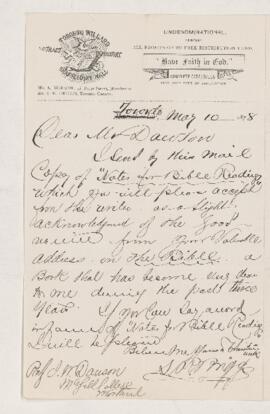 TORONTO WILLARD
TRACT DEPOSITORY
SHAFTESBURY HALL
UNDENOMINATIONAL.
"Have Faith in God."
Toronto May 10 78
Dear Mr Dawson
I send by this mail
Copy of "Notes for Bible Readings"
which you will please accept
from the writer as a slight
acknowledgment of the good
received from your valuable
address on the Bible. a
Book that has become very dear
to me during the past three
years. If you can say a word
in favor of "Notes for Bible Readings"
I will be pleased
Believe me yours in
Prof J. W. Dawson
McGill College
Montreal